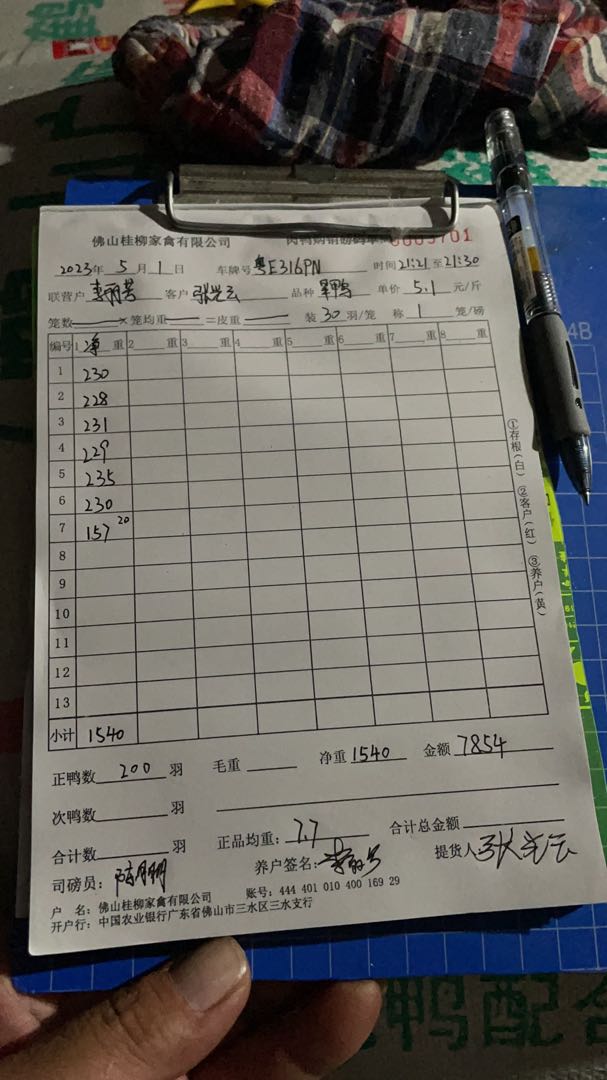 佛山桂柳家禽有限公司 肉鸭购销磅码单 0005701
2023年 5 月 1 日 车牌号 粤E316PN 时间 21:21 至 21:30
联营户 客户 张光云 品种 单价 5.1 元/斤
笼数 ×笼均重 =皮重 装 30 羽/笼 称 1 笼/磅
编号 1 净 重 2 重 3 重 4 重 5 重 6 重 7 重 8 重
1 230
2 228
3 231
4 229
5 235
6 230
7 157 20
8
9
10
11
12
13
小计 1540
正鸭数 200 羽 毛重 净重 1540 金额 7854
次鸭数 羽
合计数 羽 正品均重: 7.7 合计总金额
司磅员: 养户签名: 提货人 张光云
户 名: 佛山桂柳家禽有限公司 账号: 444 401 010 400 169 29
开户行: 中国农业银行广东省佛山市三水区三水支行
①存根(白) ②客户(红) ③养户(黄)
A4B
鸭配合